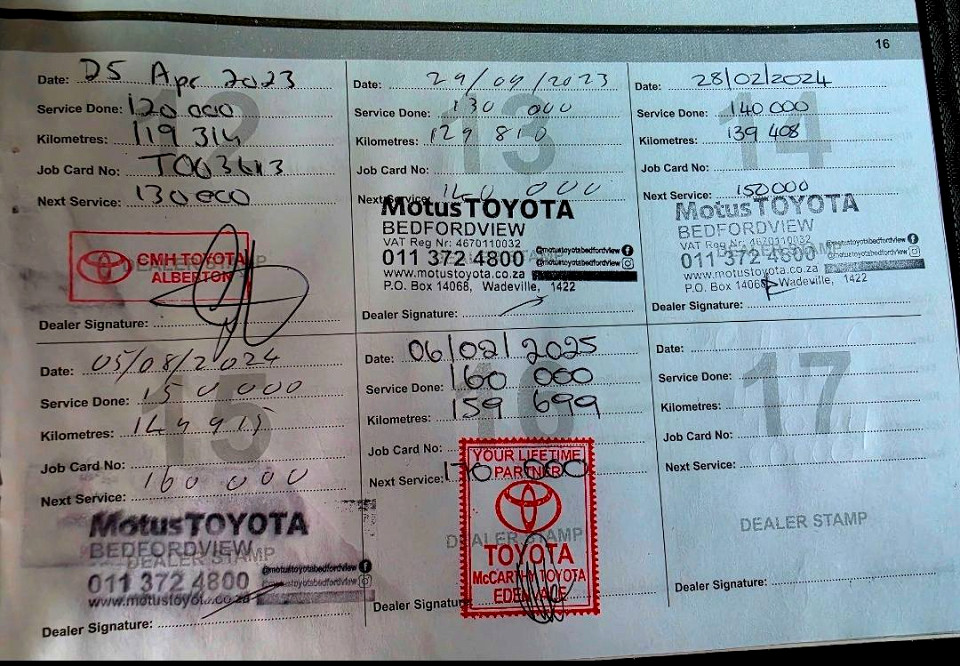 16
12
Date: 25 Apr 2023
Service Done: 120 000
Kilometres: 119 314
Job Card No:
Next Service: 130 000
DEALER STAMP
CMH TOYOTA
ALBERTON
Dealer Signature:
13
Date: 29/09/2023
Service Done: 130 000
Kilometres: 129 810
Job Card No:
Next Service: 140 000
MOTUS TOYOTA
BEDFORDVIEW
VAT Reg Nr: 4670110032
011 372 4800
@motustoyotabedfordview
@motustoyotabedfordview
www.motustoyota.co.za
P.O. Box 14068, Wadeville, 1422
Dealer Signature:
14
Date: 28/02/2024
Service Done: 140 000
Kilometres: 139 408
Job Card No:
Next Service: 150000
MOTUS TOYOTA
BEDFORDVIEW
VAT Reg Nr: 4670110032
DEALER STAMP
011 372 4800
@motustoyotabedfordview
@motustoyotabedfordview
www.motustoyota.co.za
P.O. Box 14068, Wadeville, 1422
Dealer Signature:
15
Date: 05/08/2024
Service Done: 150 000
Kilometres:
Job Card No:
Next Service: 160 000
MOTUS TOYOTA
BEDFORDVIEW
DEALER STAMP
011 372 4800
@motustoyotabedfordview
@motustoyotabedfordview
www.motustoyota.co.za
Dealer Signature:
16
Date: 06/02/2025
Service Done: 160 000
Kilometres: 159 699
Job Card No:
Next Service: 170 000
YOUR LIFETIME
PARTNER
DEALER STAMP
TOYOTA
McCARTHY TOYOTA
EDENVALE
Dealer Signature:
17
Date:
Service Done:
Kilometres:
Job Card No:
Next Service:
DEALER STAMP
Dealer Signature: